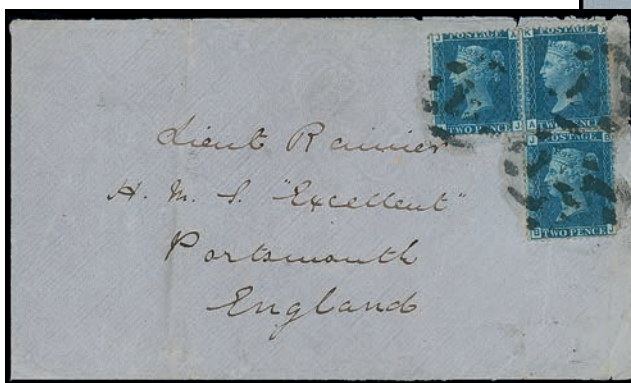 POSTAGE
TWO PENCE
POSTAGE
TWO PENCE
POSTAGE
TWO PENCE
Lieut Rainier
H. M. S. "Excellent"
Portsmouth
England